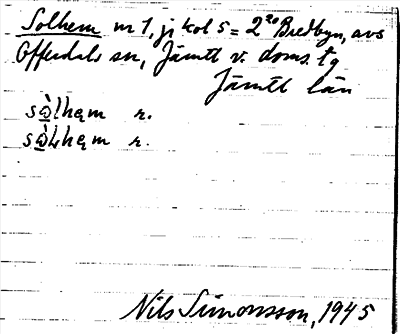 Solhem nr 1, jr kol 5 = 2²⁰ Bredbyn, avs
Offerdals sn, Jämtl v. doms. tg
Jämtl län
sòlhęm r.
sòLhęm r.
Nils Simonsson, 1945